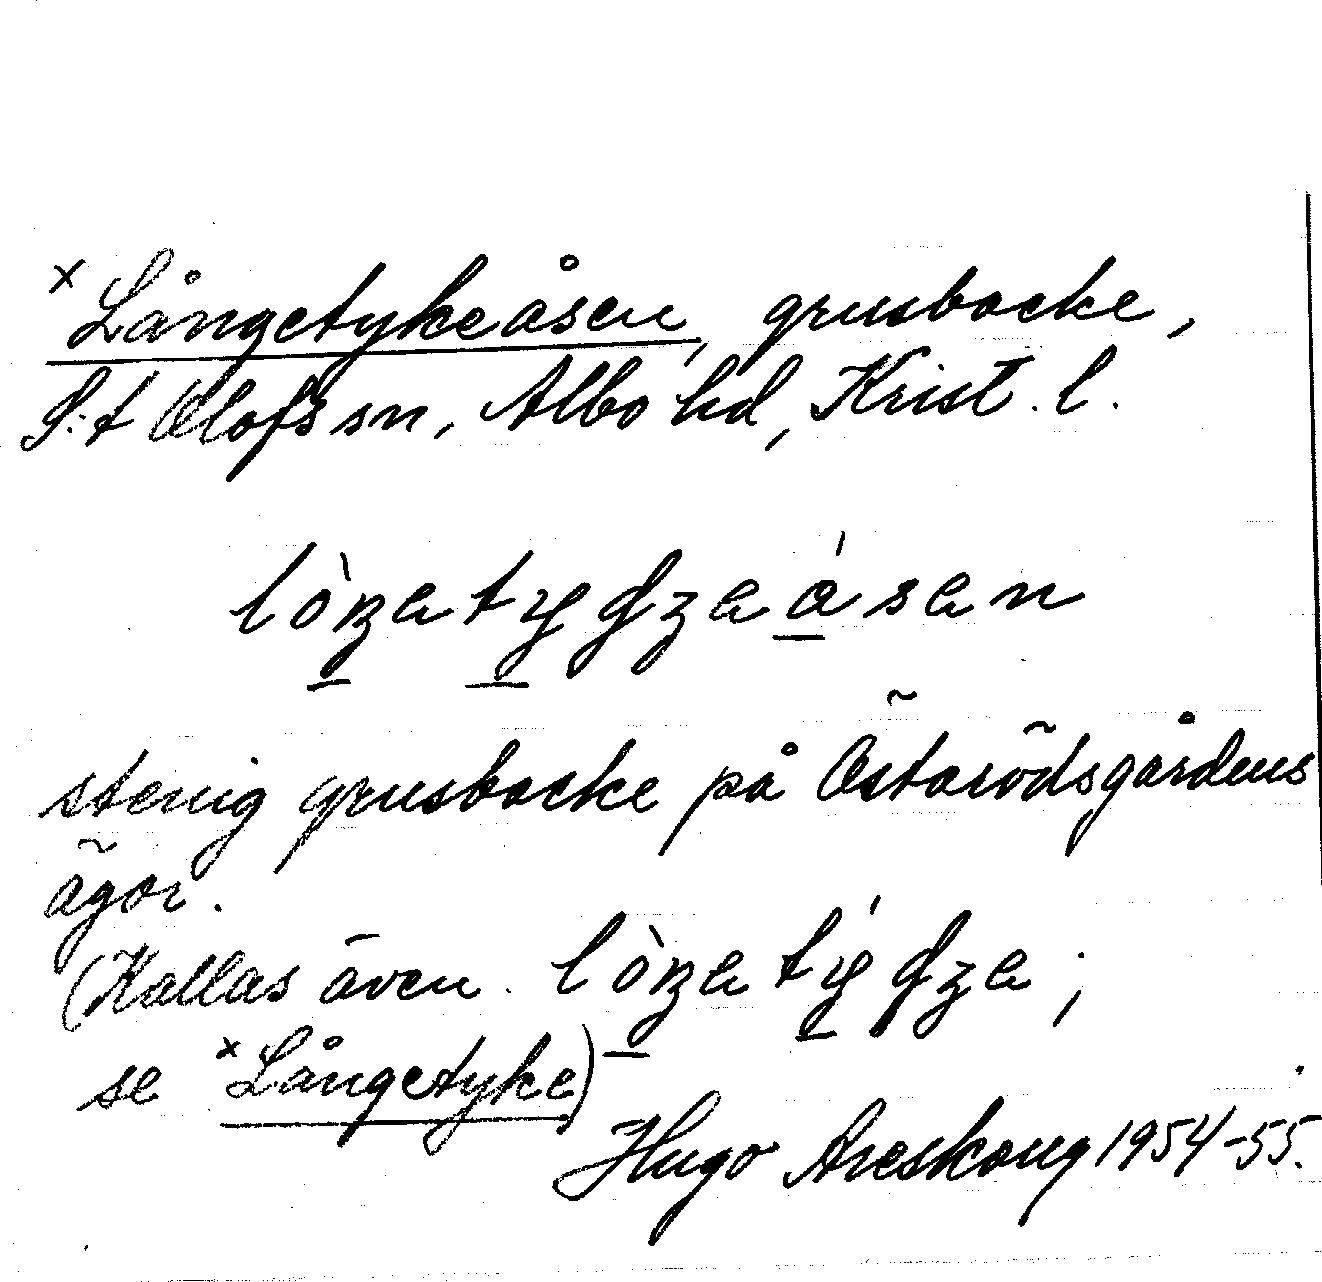 × Långetykeåsen, grusbacke,
S:t Olofs sn, Albo hd, Krist. l.
lòŋatyɠʒaásan
stenig grusbacke på Östarödsgårdens
ägor.
(Kallas även lòŋatýɠʒa;
se ×Långetyke)
Hugo Areskoug 1954-55.